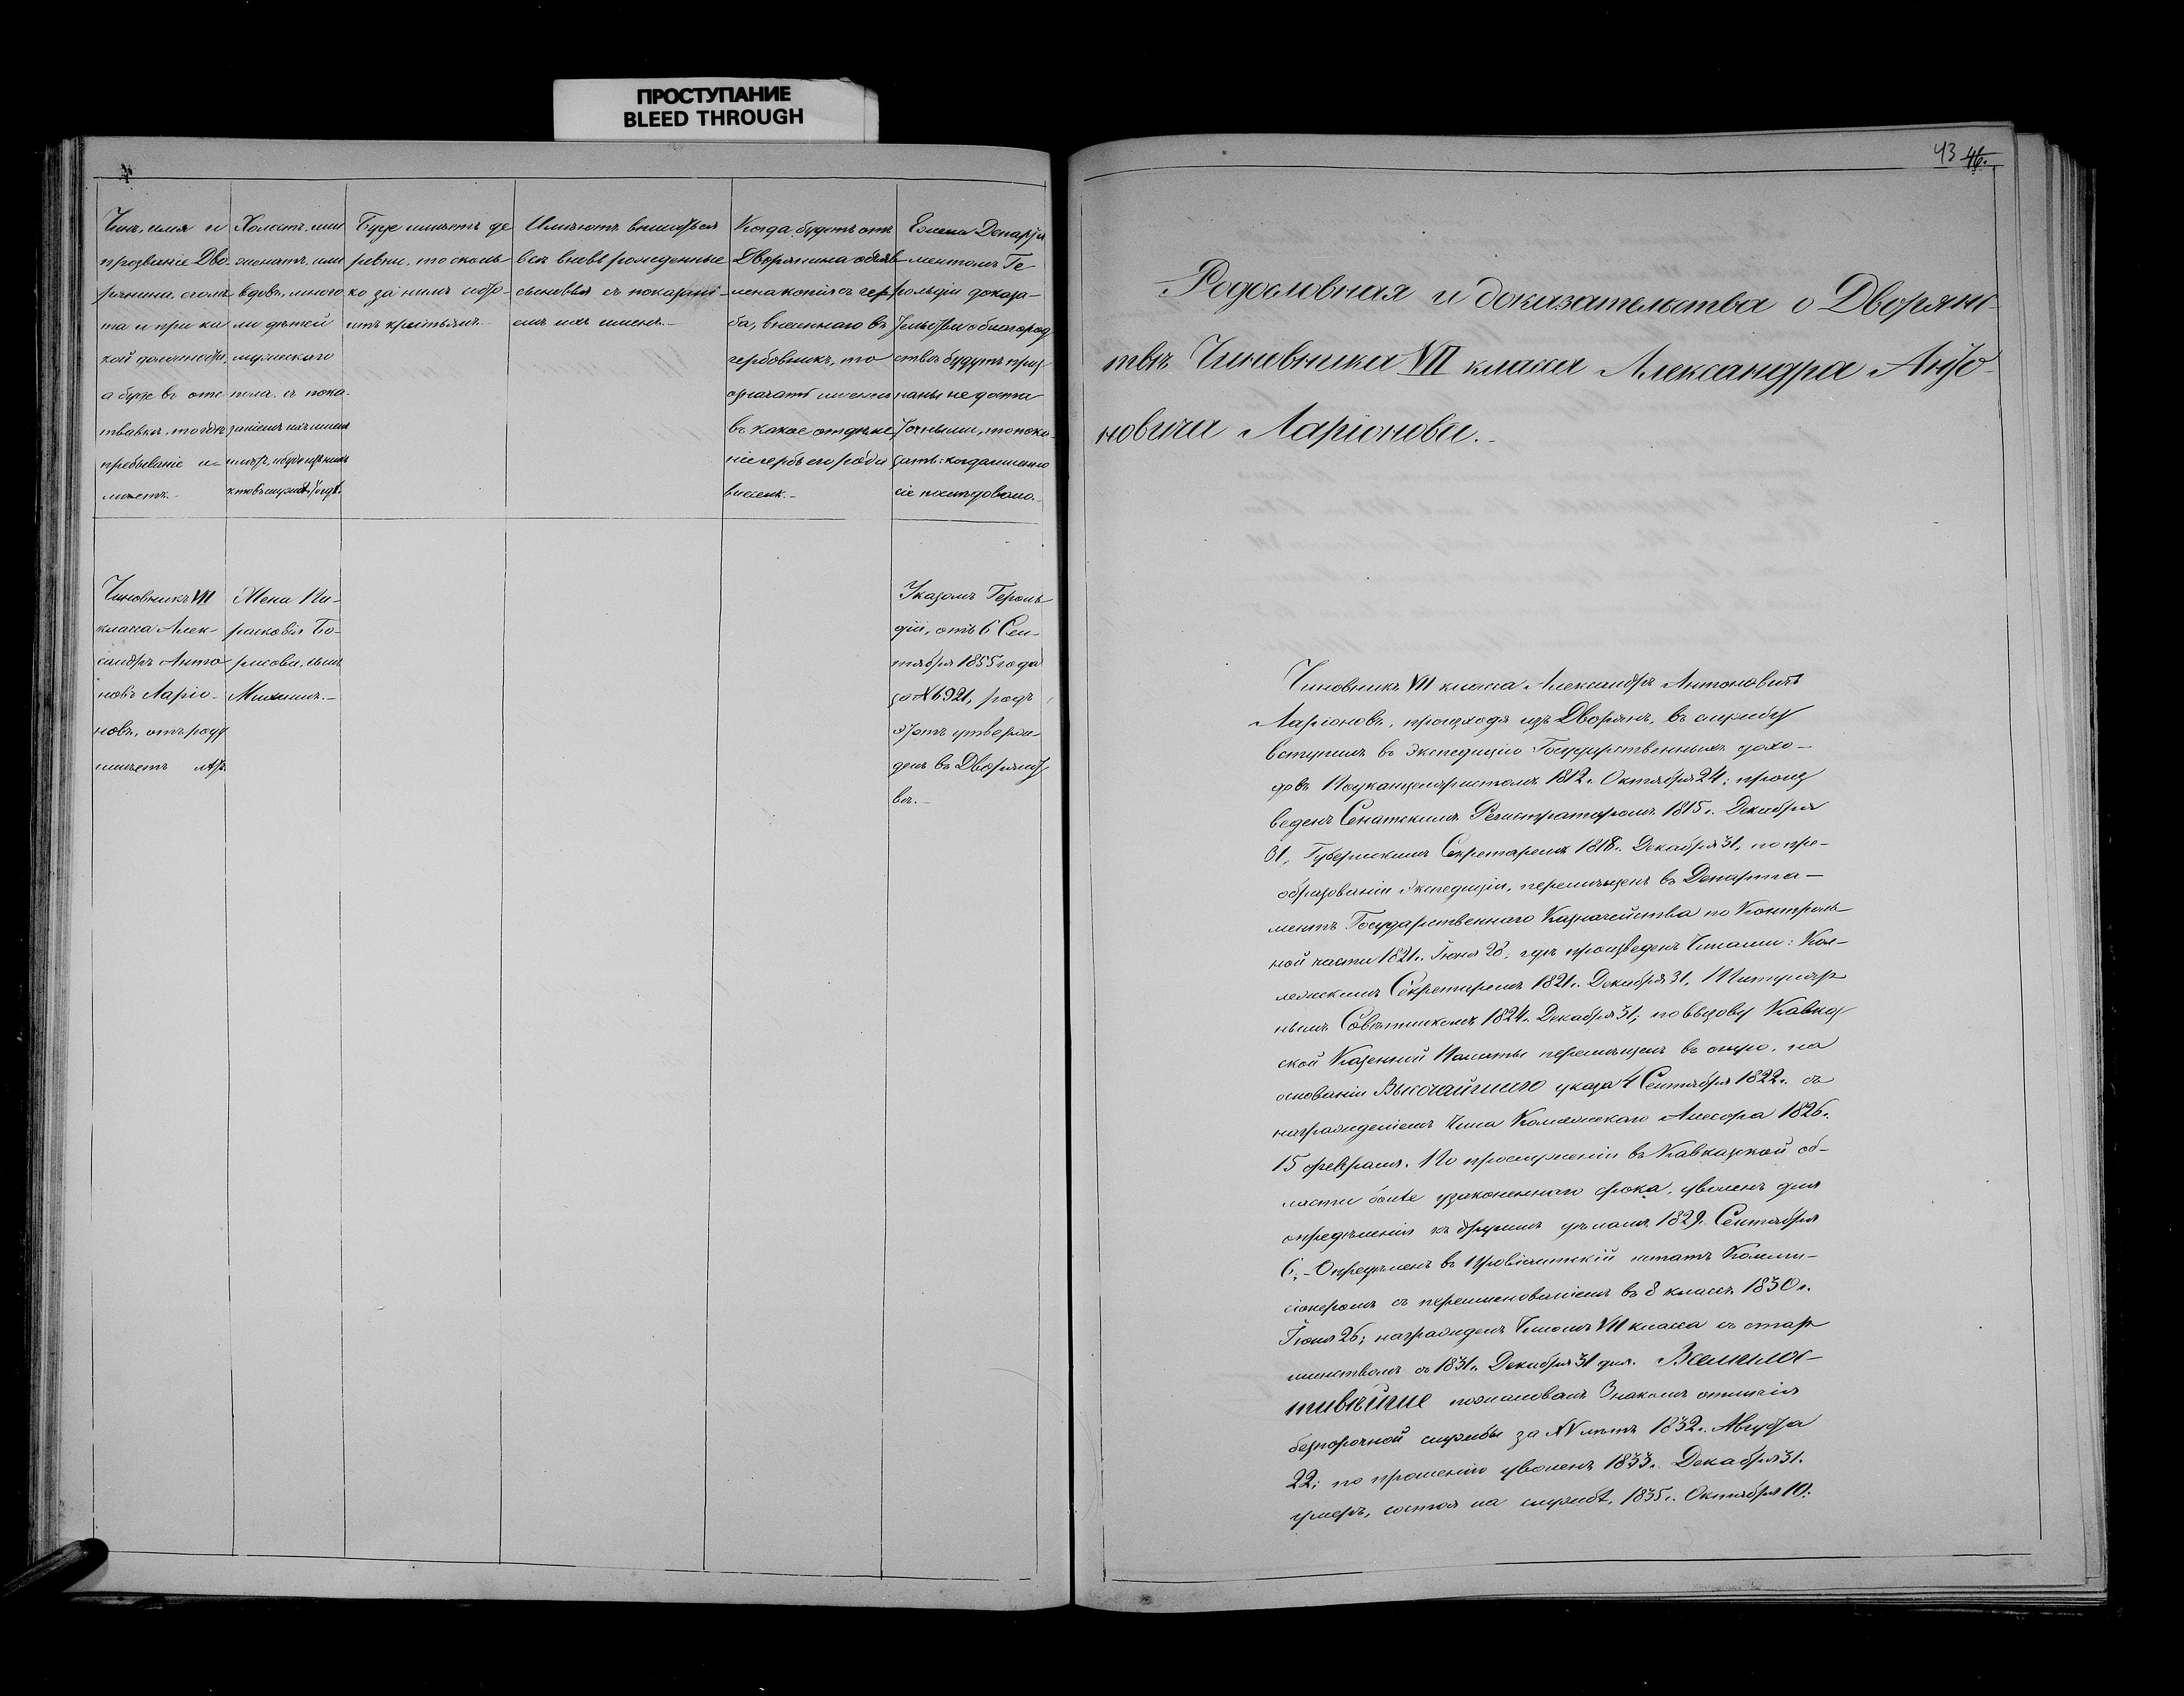 ПРОСТУПАНИЕ
BLEED THROUGH
Чинъ, имя и
прозваніе Дво-
рянина, сколь-
ка и при ка-
кой должности,
а буде въ отс-
тавкѣ, то гдѣ
пребываніе и-
мѣетъ.-
Холостъ, или
женатъ, или
вдовъ, много
ли дѣтей
мужескаго
пола, съ пока-
заніемъ ихъ именъ
Буде имѣетъ де
ревни, то сколь
ко за нимъ состо-
итъ крестьянъ.-
Имѣютъ
вновь рожденные
сыновья съ показані-
емъ ихъ имянъ.-
Когда будетъ отъ
Дворянина объяв
лена копія съ гер
ба, внесеннаго въ
гербовникъ, то
означать имянно
въ какое отдѣле
ніе гербъ его рода
внесенъ.-
Ежели Департа
ментомъ Ге
рольдіи доказа-
тельства о благород
ствѣ будутъ приз-
наны не доста
точными, то пока-
зать: когда именно
сіе послѣдовало.-
Чиновникъ VII
класса Алек-
сандръ Анто
новъ Ларіо-
новъ, отъ роду
имѣетъ лѣтъ
Жена Па-
расковія Бо-
рисова, сынъ
Михаилъ.-
Указомъ Героль-
діи, отъ 6 Сен-
тября 1855 года
за № 6921, родъ
этотъ утверж-
денъ въ Дворянст
вѣ.-
43 46.
Родословная и доказательства о Дворянс-
твѣ Чиновника VII класса Александра Анто-
новича Ларіонова.-
Чиновникъ VII класса Александръ Антоновичъ
Ларіоновъ, происходя изъ Дворянъ, въ службу
вступилъ въ Экспедицію Государственныхъ дохо-
довъ Подканцеляристомъ 1812 г. Октября 24; произ
веденъ Сенатскимъ Регистраторомъ 1815 г. Декабря
31, Губернскимъ Секретаремъ 1818 г. Декабря 31, по пре-
образованіи Экспедиціи, перемѣщенъ въ Департа-
ментъ Государственнаго Казначейства по Контроль-
ной части 1821 г. Іюня 28; гдѣ произведенъ Чинами: Кол-
лежскимъ Секретаремъ 1821 г. Декабря 31, Титуляр
нымъ Совѣтникомъ 1824 г. Декабря 31; по вызову Кавказ
ской Казенной Палаты перемѣщенъ въ оную, на
основаніи Высочайшаго указа 4 Сентября 1822 г. съ
награжденіемъ Чина Коллежскаго Ассесора 1826 г.
15 февраля. По прослуженіи въ Кавказской об-
ласти болѣе узаконеннаго срока, уволенъ для
опредѣленія къ другимъ дѣламъ 1829 г. Сентября
6.- Опредѣленъ въ Провіантскій штатъ Комми-
сіонеромъ съ переименованіемъ въ 8 классъ 1830 г.
Іюня 26; награжденъ Чиномъ VII класса съ стар
шинствомъ съ 1831 г. Декабря 31 дня. Всемилос-
тивѣйше пожалованъ Знакомъ отличія
безпорочной службы за XV лѣтъ 1832 г. Августа
22; по прошенію уволенъ 1833 г. Декабря 31.
умеръ, состоя на службѣ, 1835 г. Октября 10: